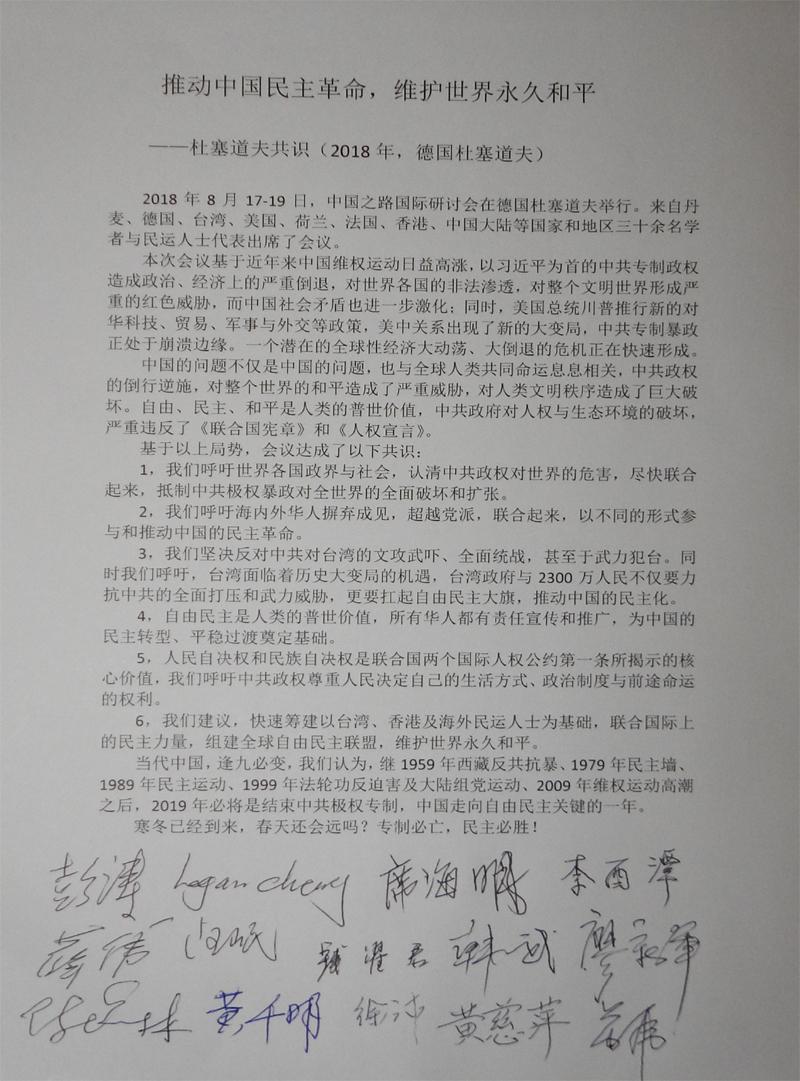 推动中国民主革命，维护世界永久和平
——杜塞道夫共识（2018 年，德国杜塞道夫）
2018 年 8 月 17-19 日，中国之路国际研讨会在德国杜塞道夫举行。来自丹
麦、德国、台湾、美国、荷兰、法国、香港、中国大陆等国家和地区三十余名学
者与民运人士代表出席了会议。
本次会议基于近年来中国维权运动日益高涨，以习近平为首的中共专制政权
造成政治、经济上的严重倒退，对世界各国的非法渗透，对整个文明世界形成严
重的红色威胁，而中国社会矛盾也进一步激化；同时，美国总统川普推行新的对
华科技、贸易、军事与外交等政策，美中关系出现了新的大变局，中共专制暴政
正处于崩溃边缘。一个潜在的全球性经济大动荡、大倒退的危机正在快速形成。
中国的问题不仅是中国的问题，也与全球人类共同命运息息相关，中共政权
的倒行逆施，对整个世界的和平造成了严重威胁，对人类文明秩序造成了巨大破
坏。自由、民主、和平是人类的普世价值，中共政府对人权与生态环境的破坏，
严重违反了《联合国宪章》和《人权宣言》。
基于以上局势，会议达成了以下共识：
1，我们呼吁世界各国政界与社会，认清中共政权对世界的危害，尽快联合
起来，抵制中共极权暴政对全世界的全面破坏和扩张。
2，我们呼吁海内外华人摒弃成见，超越党派，联合起来，以不同的形式参
与和推动中国的民主革命。
3，我们坚决反对中共对台湾的文攻武吓、全面统战，甚至于武力犯台。同
时我们呼吁，台湾面临着历史大变局的机遇，台湾政府与 2300 万人民不仅要力
抗中共的全面打压和武力威胁，更要扛起自由民主大旗，推动中国的民主化。
4，自由民主是人类的普世价值，所有华人都有责任宣传和推广，为中国的
民主转型、平稳过渡奠定基础。
5，人民自决权和民族自决权是联合国两个国际人权公约第一条所揭示的核
心价值，我们呼吁中共政权尊重人民决定自己的生活方式、政治制度与前途命运
的权利。
6，我们建议，快速筹建以台湾、香港及海外民运人士为基础，联合国际上
的民主力量，组建全球自由民主联盟，维护世界永久和平。
当代中国，逢九必变，我们认为，继 1959 年西藏反共抗暴、1979 年民主墙、
1989 年民主运动、1999 年法轮功反迫害及大陆组党运动、2009 年维权运动高潮
之后，2019 年必将是结束中共极权专制，中国走向自由民主关键的一年。
寒冬已经到来，春天还会远吗？专制必亡，民主必胜！
彭涛 Logan cheng 席海明 李酉潭
薛伟 韩武 廖
林 黄千明 徐沛 黄慈萍